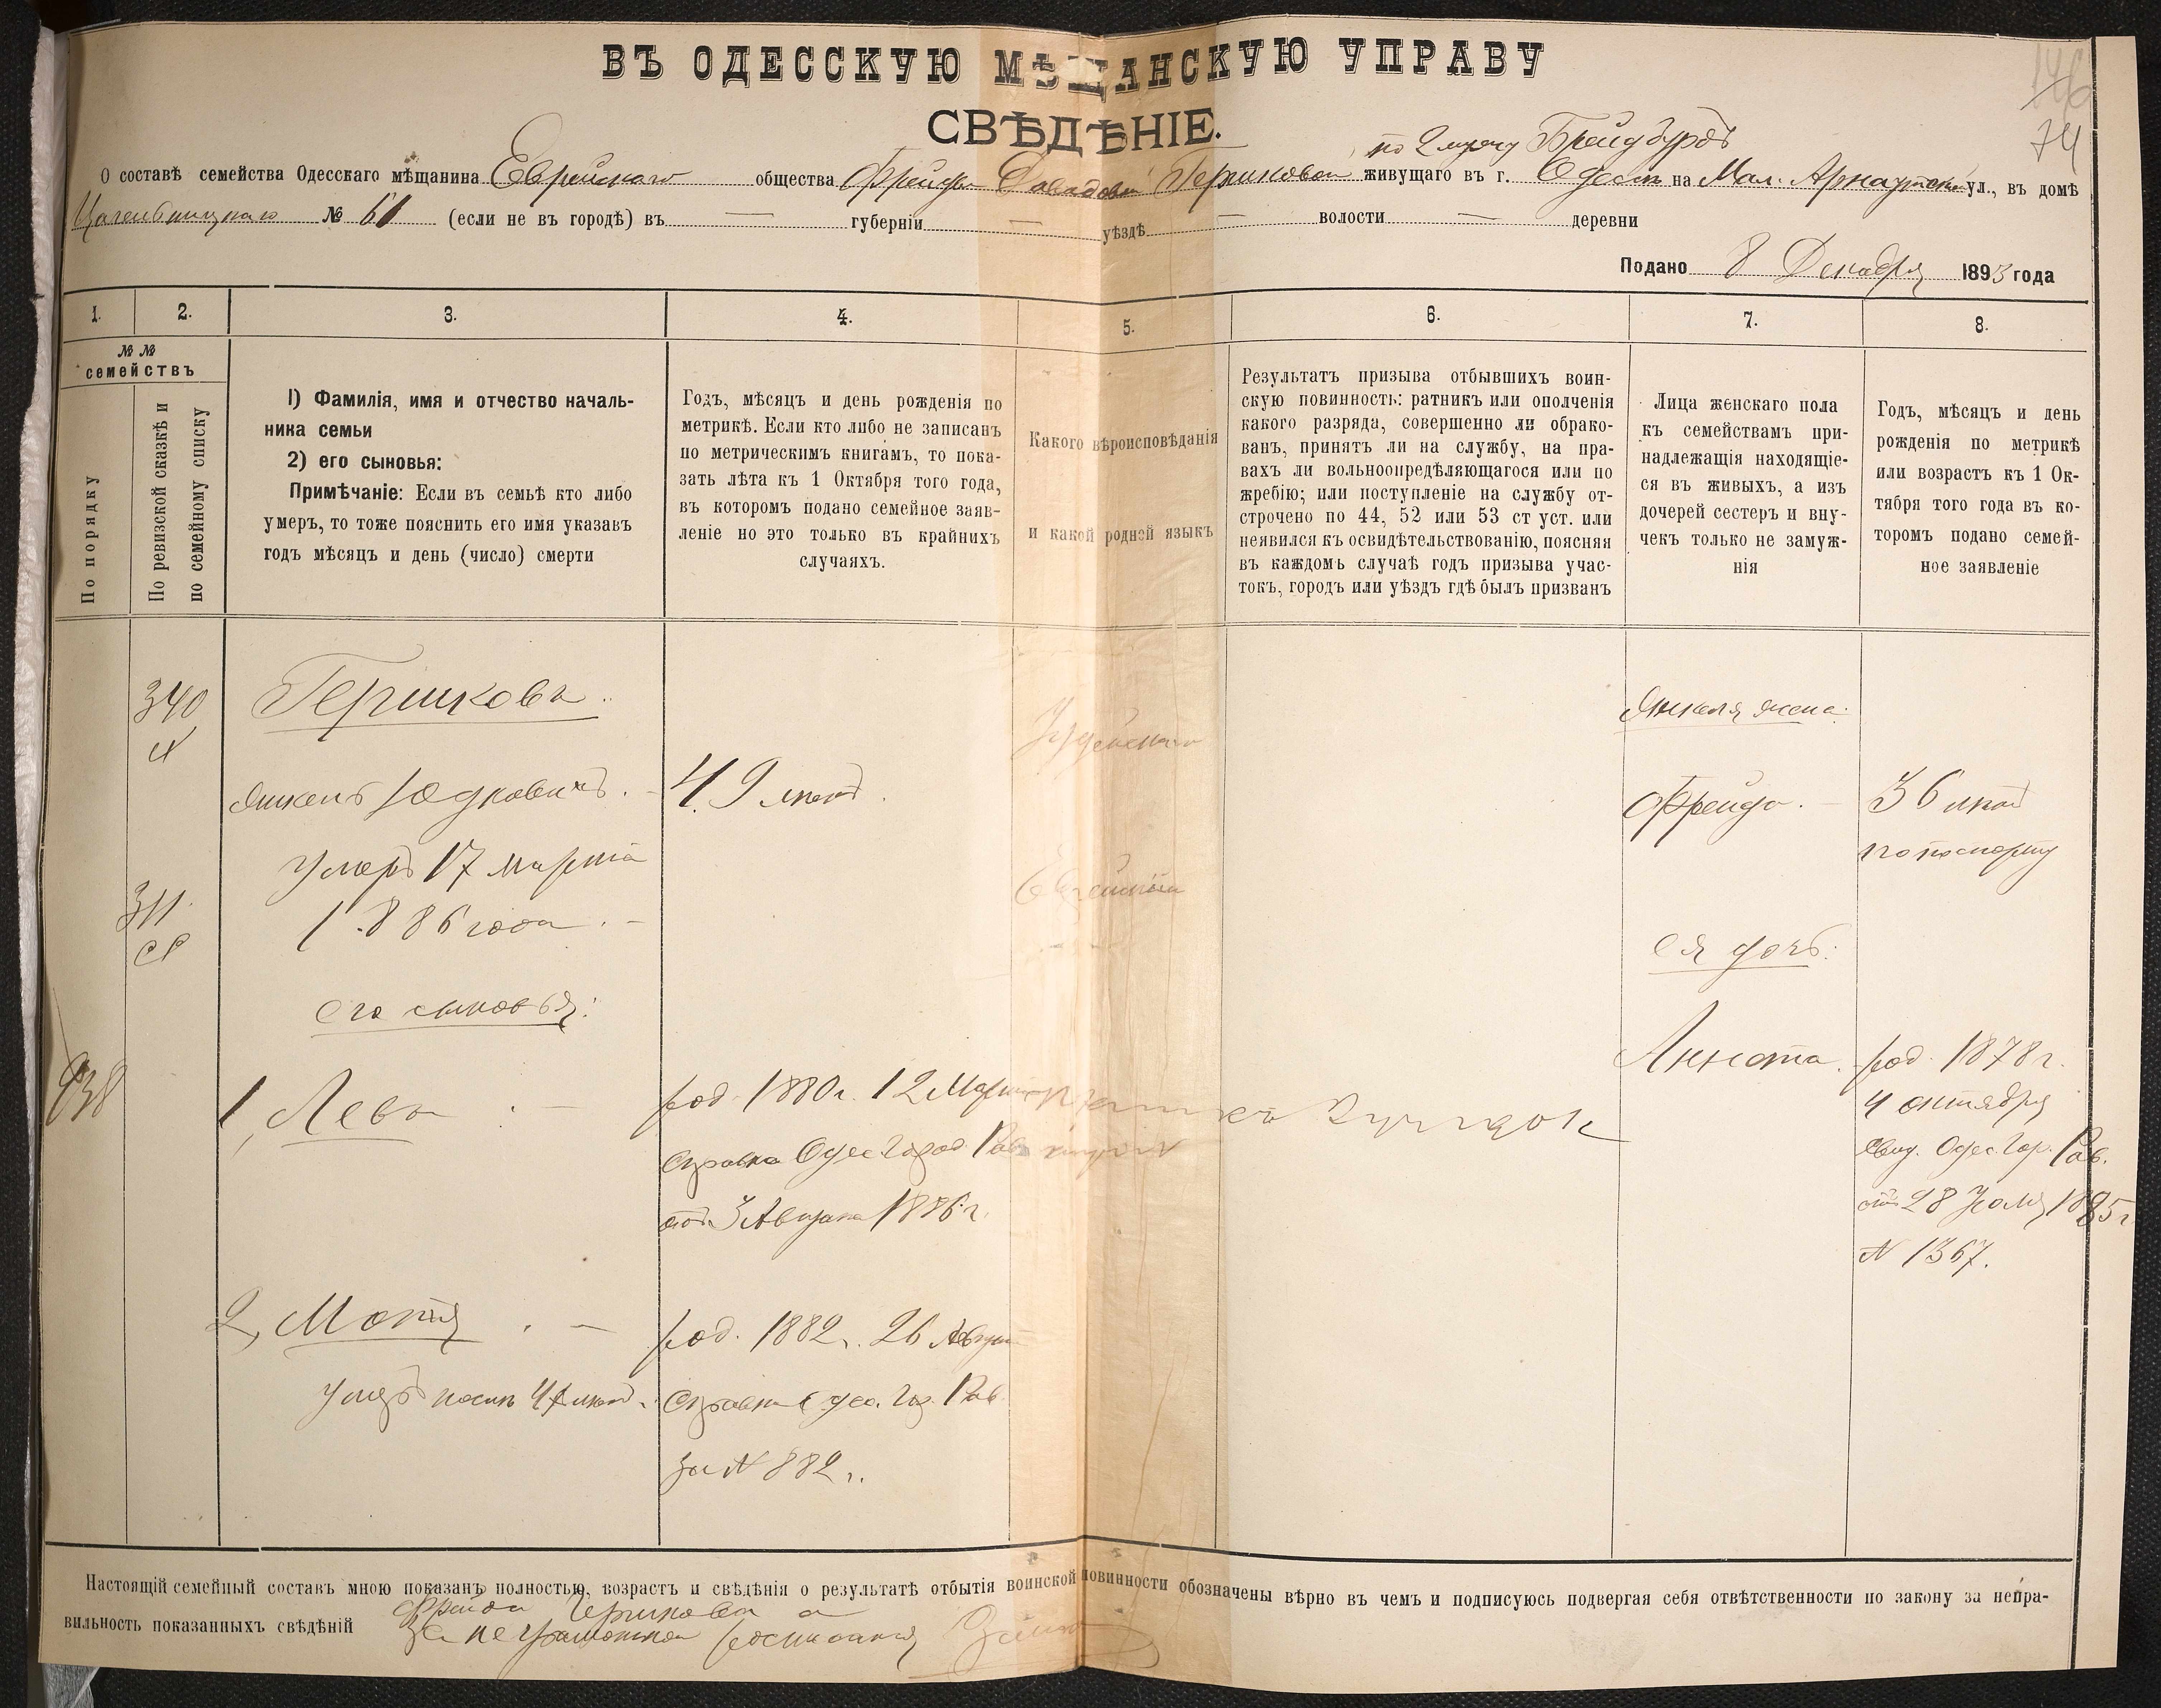 ВЪ ОДЕССКУЮ МѢЩАНСКУЮ УПРАВУ
СВѢДѢНІЕ.
146
74
по 2 мужу Брейдбурдъ
О составѣ семейства Одесскаго мѣщанина Еврейскаго общества Фрейды Давидовой Гершковой живущаго въ г. Одессѣ на Мал. Арнаутской ул., въ домѣ
№ 61 (если не въ городѣ) въ — губерніи — уѣздѣ — волости — деревни
Подано 8 Декабря 1893 года
1. 2. 3. 4. 5. 6. 7. 8.
№ №
семействъ
По порядку
По ревизской сказкѣ и
по семейному списку
1) Фамилія, имя и отчество началь-
ника семьи
2) его сыновья:
Примѣчаніе: Если въ семьѣ кто либо
умеръ, то тоже пояснить его имя указавъ
годъ мѣсяцъ и день (число) смерти
Годъ, мѣсяцъ и день рожденія по
метрикѣ. Если кто либо не записанъ
по метрическимъ книгамъ, то пока-
зать лѣта къ 1 Октября того года,
въ которомъ подано семейное заяв-
леніе но это только въ крайнихъ
случаяхъ.
Какого вѣроисповѣданія
и какой родной языкъ
Результатъ призыва отбывшихъ воин-
скую повинность: ратникъ или ополченія
какого разряда, совершенно ли обрако-
ванъ, принятъ ли на службу, на пра-
вахъ ли вольноопредѣляющагося или по
жребію; или поступленіе на службу от-
строчено по 44, 52 или 53 ст уст. или
неявился къ освидѣтельствованію, поясняя
въ каждомъ случаѣ годъ призыва учас-
токъ, городъ или уѣздъ гдѣ былъ призванъ
Лица женскаго пола
къ семействамъ при-
надлежащія находящіе-
ся въ живыхъ, а изъ
дочерей сестеръ и вну-
чекъ только не замуж-
нія
Годъ, мѣсяцъ и день
рожденія по метрикѣ
или возрастъ къ 1 Ок-
тября того года въ ко-
торомъ подано семей-
ное заявленіе
340
Гершковъ
Іудейскаго
Янкеля жена:
Янкель Юдковичъ. — 49 лѣтъ.
Фрейда. — 36 лѣтъ
по паспорту
Умеръ 17 марта
1886 года. —
311
Еврейскій
ея дочь:
его сыновья:
938
1, Левъ . — род. 1880 г. 12 Марта
Справка Одес. Город. Рав.
от 3 Августа 1886 г.
Аннета. род. 1878 г.
4 октября
Свид. Одес. Гор. Рав.
отъ 28 1885 г.
N 1367.
2, Мотя . — род. 1882 г. 26 Августа
Умеръ 4 лѣтъ. Справка Одес. Гор. Рав.
за N 882 г.
Настоящій семейный составъ мною показанъ полностью, возрастъ и свѣдѣнія о результатѣ отбытія воинской повинности обозначены вѣрно въ чемъ и подписуюсь подвергая себя отвѣтственности по закону за непра-
вильность показанныхъ свѣдѣній Фрейда Гершкова а
за неграмотной